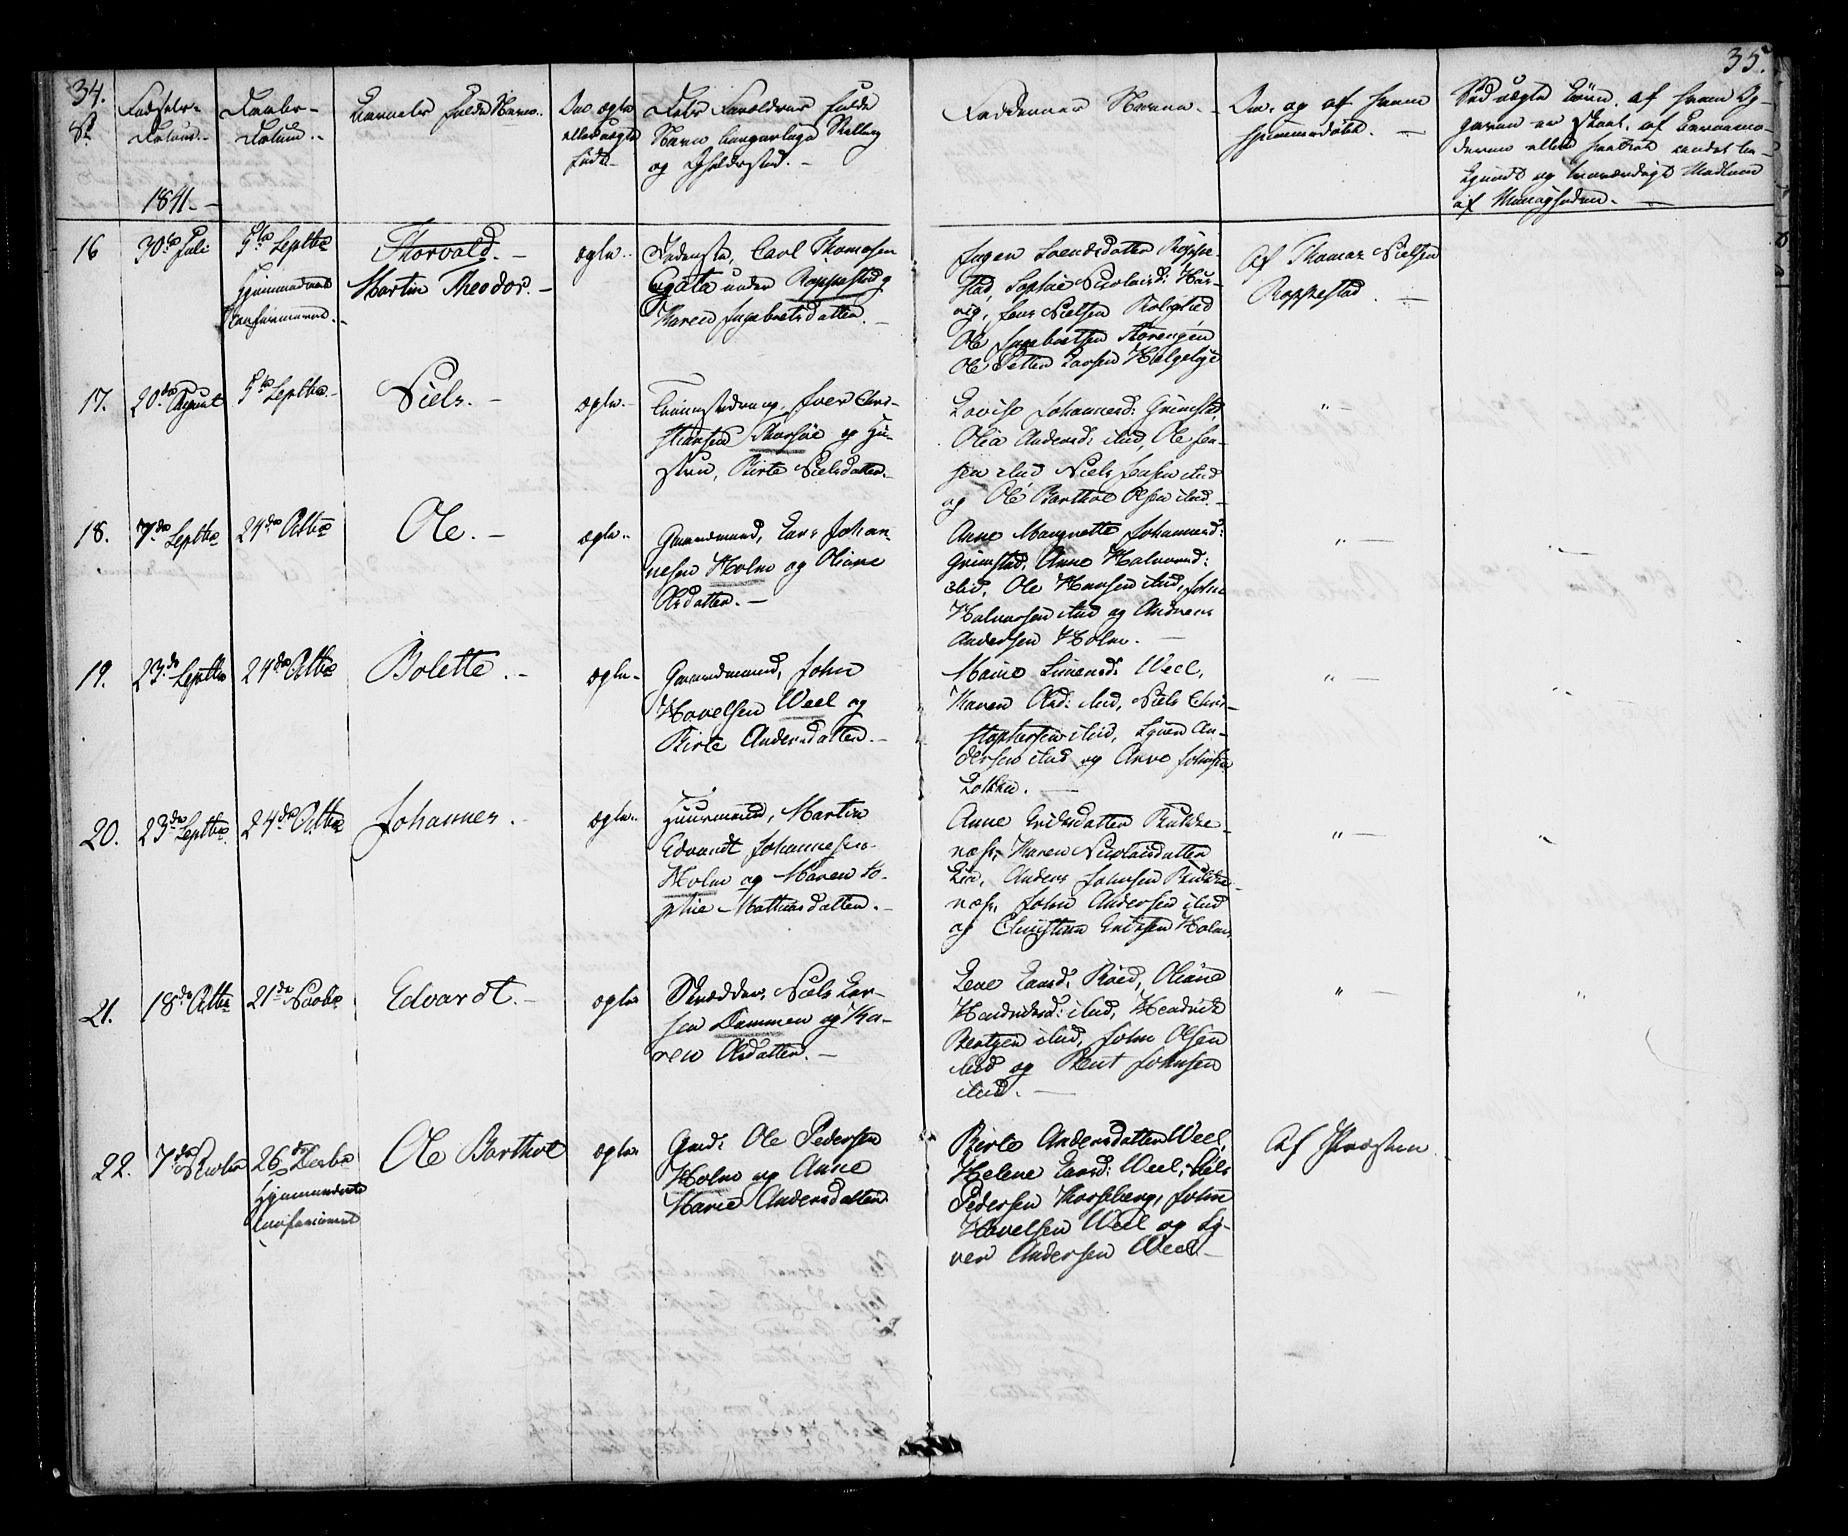 34.
35.
No
Fødsels-
Datum.
1841.
Daabs-
Datum.
Barnets fulde Navn.
Om ægte
eller uægte
født.
Dets Forældres fulde
Navn borgerlige Stilling
og Opholdssted.
Faddernes Navne.
Om, og af hvem
hjemmedøbt.
Ved uægte Børn, af hvem Op-
af Menigheden.
16
30te Juli
5te Septbr
Hjemmedaab
confirmeret.
Thorvald
Martin Theodor.
ægte.
Carl Thomesen
under Roppestad og
Karen Ingebretsdatter.
Ingen Svendsdatter Roppe-
stad, Sophie Nicolaisd: Har-
vig, Jens Nielsen Rolighed
Ole Ingebretsen Storengen
Ole Petter Larsen Helgelye
Af Thomas Nielsen
Roppestad.
17.
20de August
5te Septbr.
Niels.
ægte.
Iver Chri-
stiansen Thorsøe og Hu-
stru, Birte Nielsdatter.
Lovise Johannesd: Grimstad
Olia Andersd: ibid, Ole Jen-
sen ibid Niels Jensen ibid
og Ole Barthol Olsen ibid.
"
18.
7de Septbr
24de Octbr
Ole.
ægte.
Gaardmand, Lars Johan-
nesen Holm og Oliane
Olsdatter.
Anne Margrette Johannesd:
Grimstad, Anne Halvorsd:
ibid, Ole Hansen ibid, John
Halvorsen ibid og Andreas
Andersen Holm.
"
"
19.
23de Septbr
24de Octbr
Bolette.
ægte.
Gaardmand, John
Hovelsen Weel og
Birte Andersdatter.
Marie Simensd: Weel,
Karen Olsd: ibid, Niels Chri-
stophersen ibid, Syver An-
dersen ibid og Arve Johnsen
Løkken.
"
"
20.
23de Septbr
24de Octbr
Johannes.
ægte.
Huusmand, Martin
Edvardt Johannesen
Holm og Maren So-
phie Mathiasdatter.
Anne Eriksdatter Bukke-
næss, Karen Nicolaisdatter
Lie, Anders Johnsen Bukke-
næss, John Andersen ibid
og Christian Eriksen Holm,
"
"
21.
18de Octbr
21de Novbr
Edvardt.
ægte
Skrædder, Niels Lar-
sen Dammen og Ka-
ren Olsdatter.
Lene Larsd: Røed, Oliane
Hendriksd: ibid, Hendrik
Bentzen ibid, John Olsen
ibid og Bent Johnsen
ibid.
"
"
22.
7de Novbr
26de Decbr
Hjemmedaab
confirmeret
Ole Barthol
ægte
Grmd: Ole Pedersen
Holm og Anne
Marie Andersdatter
Birte Andersdatter Weel,
Helene Larsd: Weel, Nils
Pedersen Korseberg, John
Hovelsen Weel og Sy-
ver Andersen Weel
Af Præsten